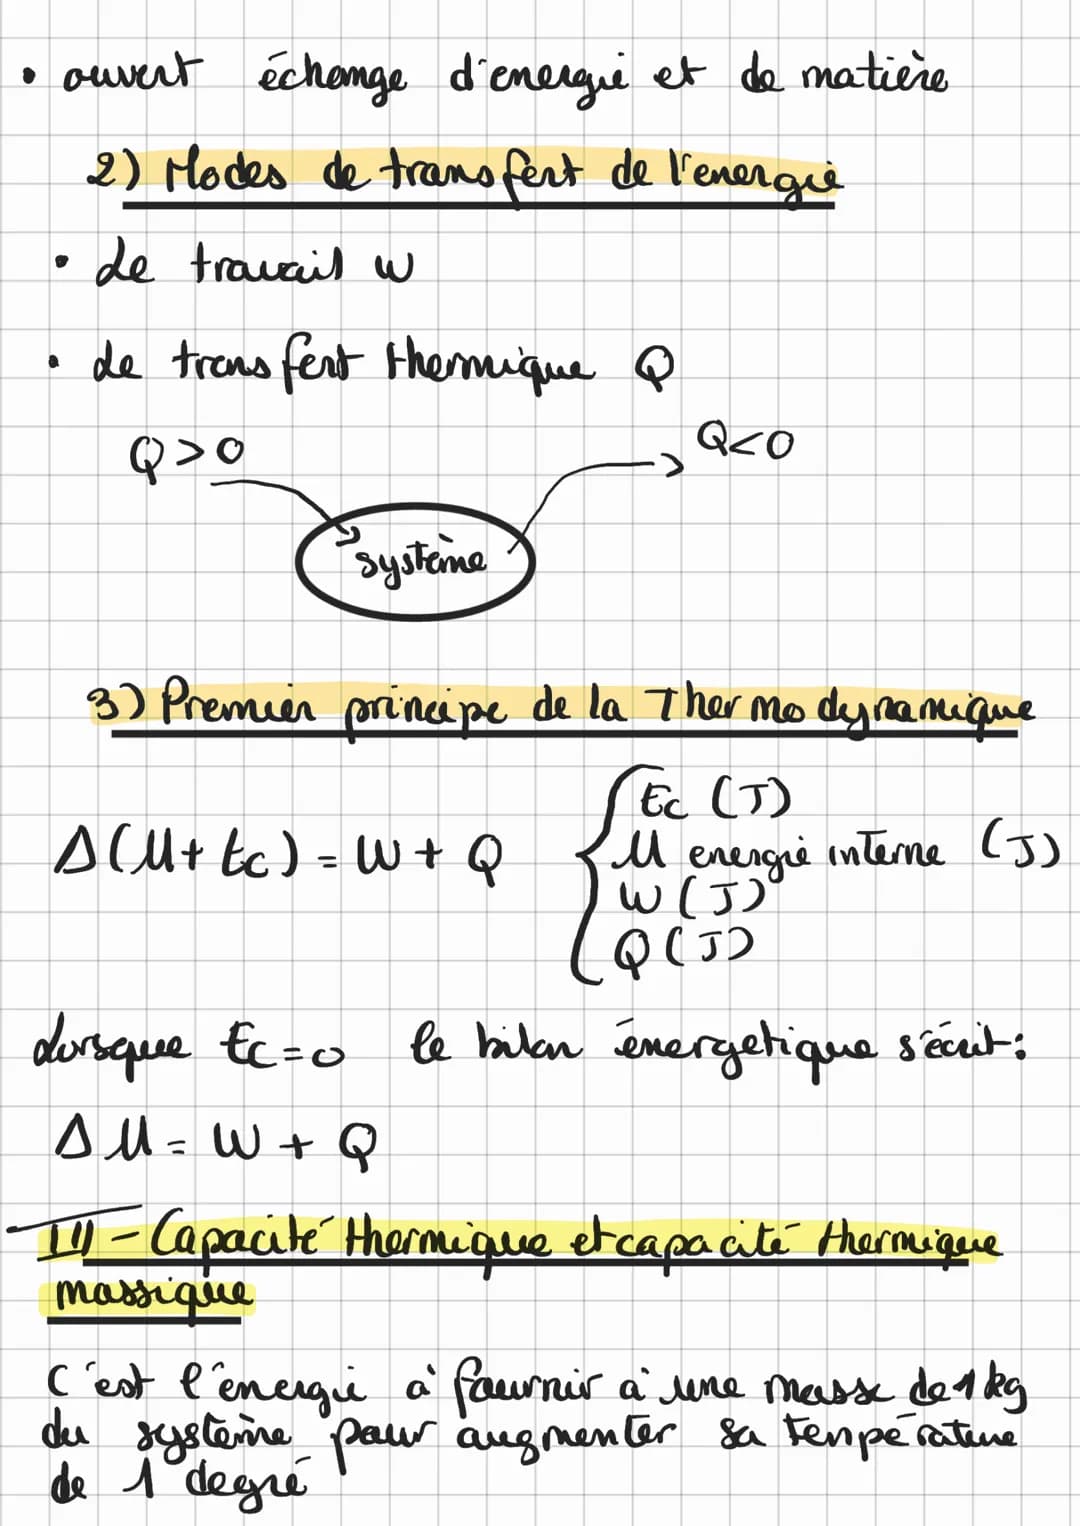 • ouvert échange d'energie et de matière
2) Modes de transfert de l'energie
• Le travail W
• Le transfert thermique Q
Q>0
Q<0
système
3) Premier principe de la Thermodynamique
Δ(U+Ec) = W + Q
Ec (J)
U energie interne (J)
W (J)
Q (J)
Lorsque Ec=0 le bilan énergetique s'écrit:
ΔU = W + Q
III - Capacité thermique et capacité thermique
massique
C'est l'énergie à fournir à une masse de 1kg
du système pour augmenter sa température
de 1 degré